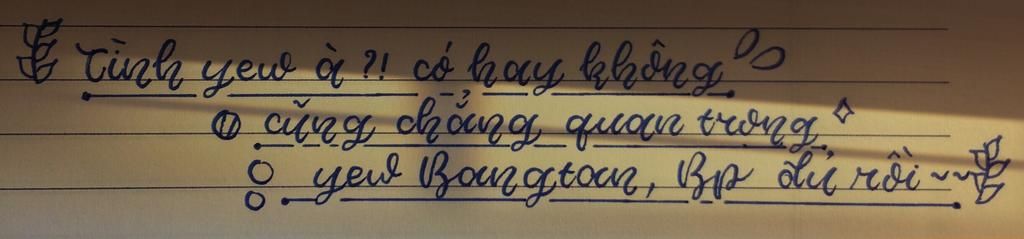 Tình yew à ?! có hay không
cũng chẳng quan trọng
yew Bangtan, Bp đủ rồi ~~